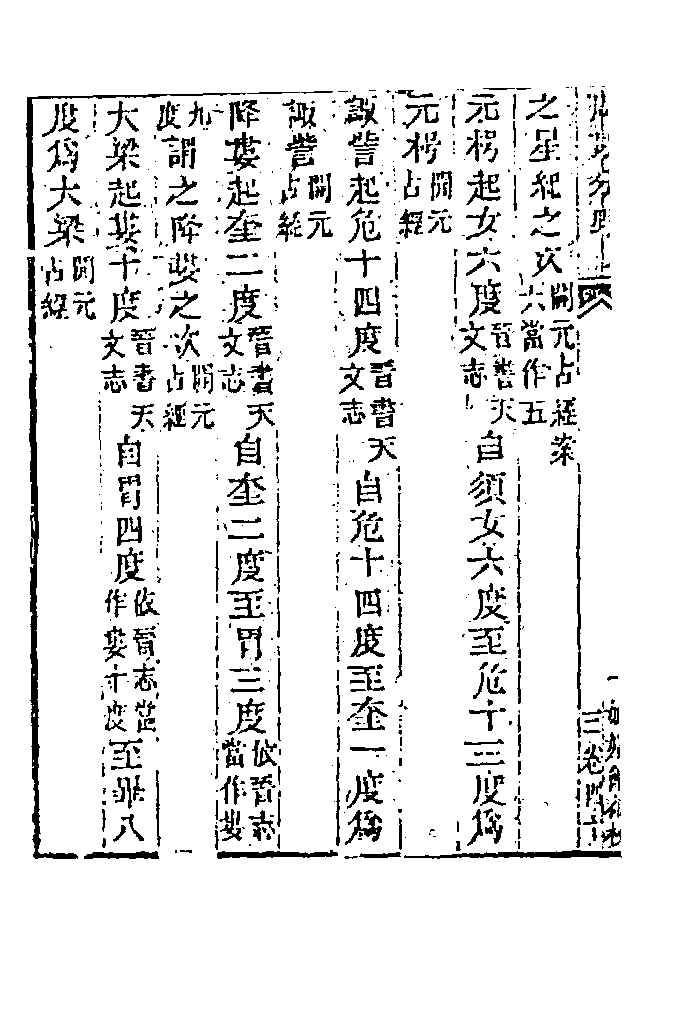 之星紀之次開元占經案六當作五
元枵起女六度晉書天文志自須女六度至危十三度爲
元枵開元占經
諏訾起危十四度晉書天文志自危十四度至奎一度爲
諏訾開元占經
降婁起奎二度晉書天文志自奎二度至胃三度依晉志當作婁
九度謂之降婁之次開元占經
大梁起婁十度晉書天文志自胃四度依晉志當作婁十度至畢八
度爲大梁開元占經
三 卷四